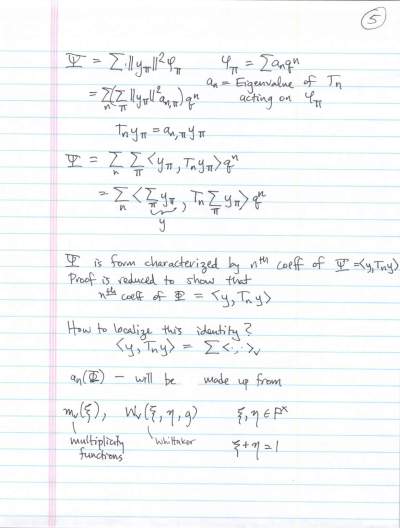 5
Ψ = Σ ||y_π||² φ_π    φ_π = Σ a_n q^n
a_n = Eigenvalue of T_n
= Σ_n (Σ_π ||y_π||² a_{n,π}) q^n    acting on φ_π
T_n y_π = a_{n,π} y_π
Ψ = Σ_n Σ_π <y_π, T_n y_π> q^n
= Σ_n <Σ_π y_π, T_n Σ_π y_π> q^n
y
Ψ is form characterized by n^th coeff of Ψ = <y, T_n y>
Proof is reduced to show that
n^th coeff of Φ = <y, T_n y>
How to localize this identity?
<y, T_n y> = Σ <·,·>_v
a_n(Φ) – will be made up from
m_v(ξ), W_v(ξ, η, g)    ξ, η ∈ F^x
multiplicity functions    Whittaker    ξ + η = 1